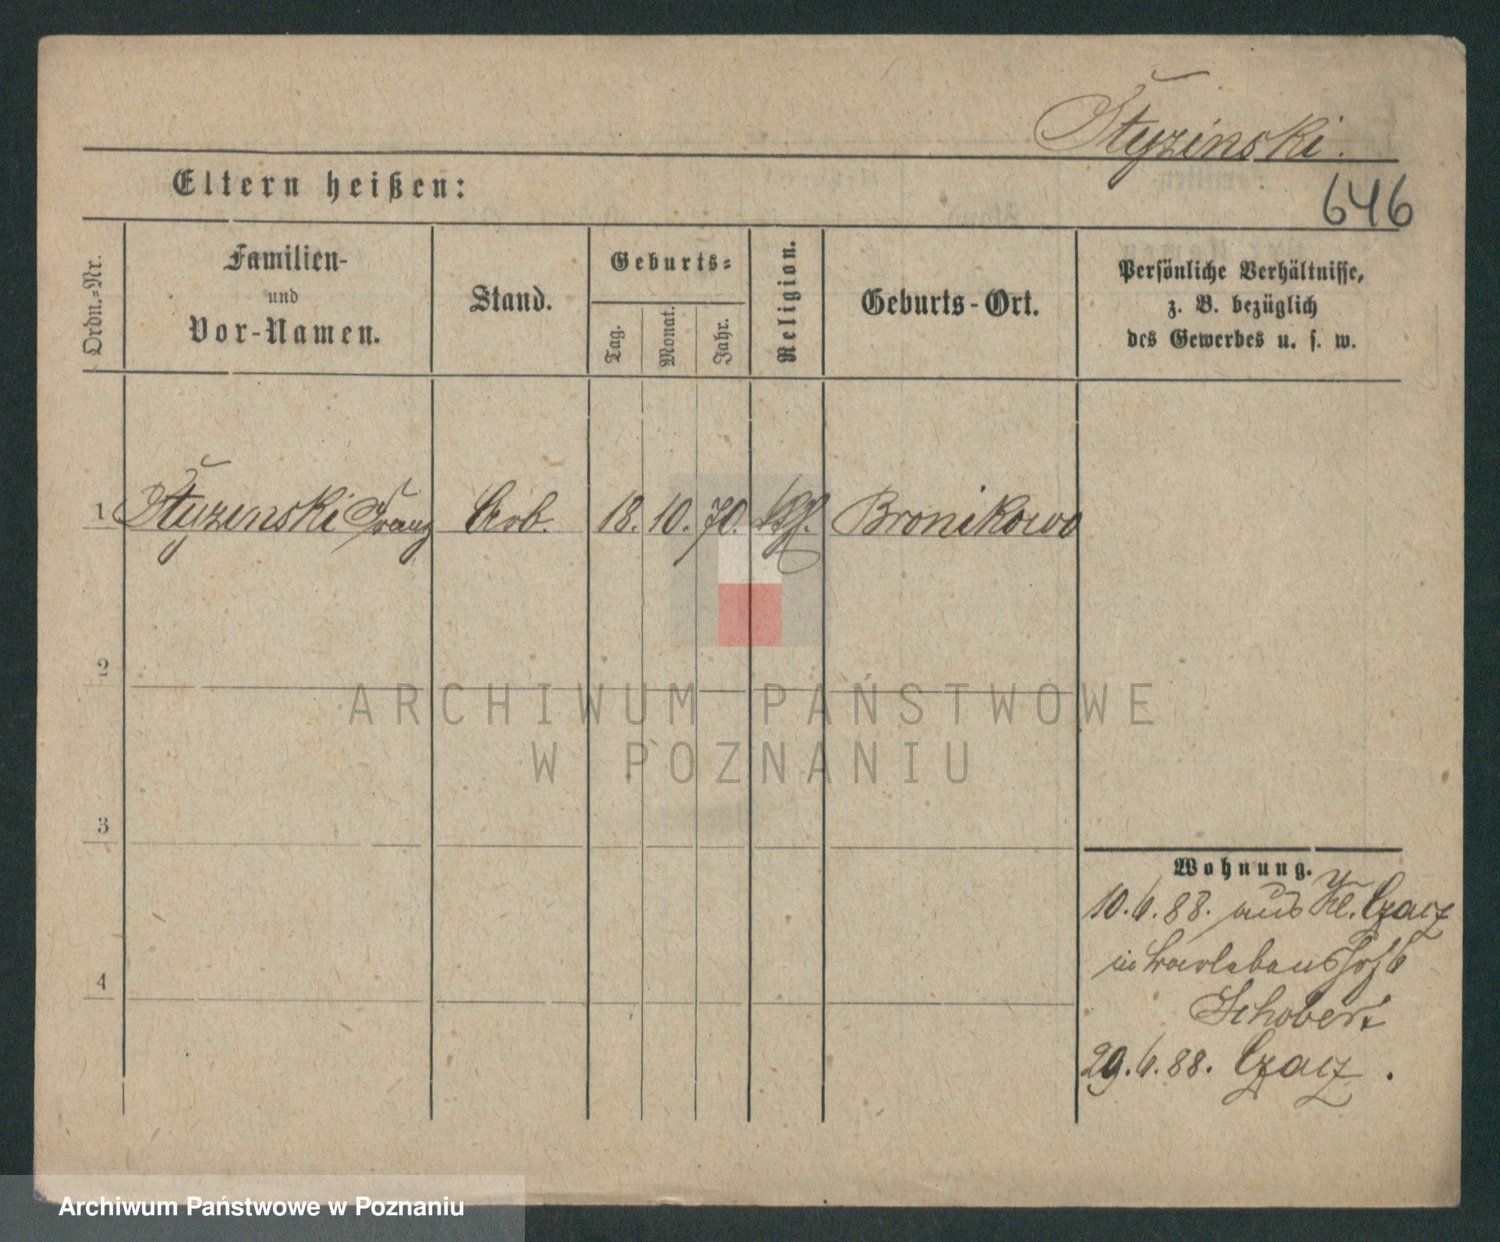 Styzinski.
646
Eltern heißen:
Ordn.-Nr.
Familien-
und
Vor-Namen.
Stand.
Geburts-
Tag.
Monat.
Jahr.
Religion.
Geburts-Ort.
Persönliche Verhältnisse,
z. B. bezüglich
des Gewerbes u. s. w.
1 Styzinski Franz Arb. 18. 10. 70. Bronikowo
2
3
4
Wohnung.
10.6.88. aus Kl. Czacz
in
Schobert
29.6.88. Czacz.
ARCHIWUM PAŃSTWOWE
W POZNANIU
Archiwum Państwowe w Poznaniu